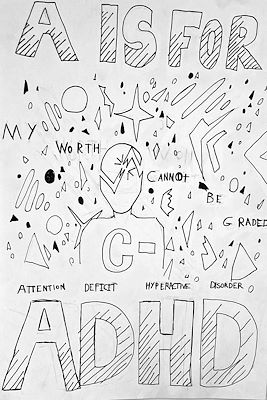 A IS FOR
MY WORTH
CANNOT BE GRADED
C-
ATTENTION DEFICIT HYPERACTIVE DISORDER
ADHD